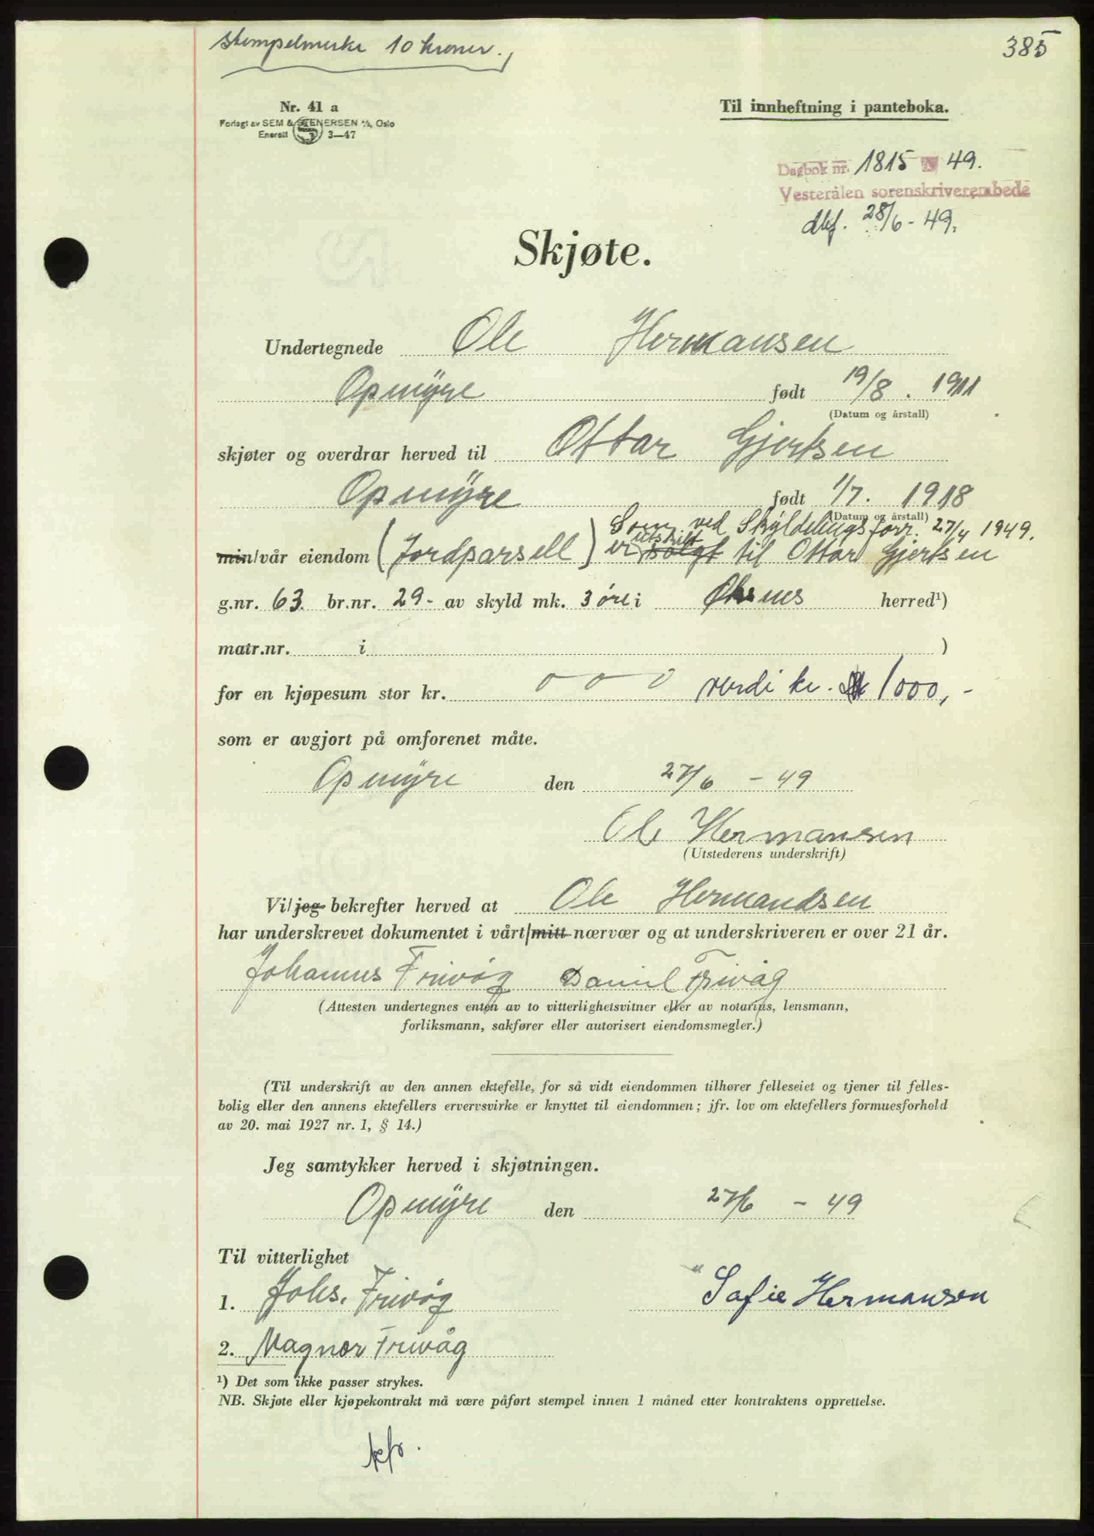 Stempelmerke 10 kroner.
385
Nr. 41 a
Forlagt av SEM & STENERSEN A/S, Oslo
Enerett 3—47
Til innheftning i panteboka.
Dagbok nr. 1815 49.
Vesterålen sorenskriverembede
dkf. 28/6 - 49.
Skjøte.
Undertegnede Ole Hermansen
Opmyre født 19/8. 1911
(Datum og årstall)
skjøter og overdrar herved til Ottar Gjertsen
Opmyre født 1/7. 1918
(Datum og årstall)
Som ved Skyldelingsforr. 27/4 1949.
min/vår eiendom (Jordparsell) er utskilt solgt til Ottar Gjertsen
g.nr. 63 br.nr. 29- av skyld mk. 3 øre i Øksnes herred¹)
matr.nr. i )
for en kjøpesum stor kr. o o o verdi kr. 1000,-
som er avgjort på omforenet måte.
Opmyre den 27/6 - 49
Ole Hermansen
(Utstederens underskrift)
Vi/jeg bekrefter herved at Ole Hermandsen
har underskrevet dokumentet i vårt/mitt nærvær og at underskriveren er over 21 år.
Johannes Frivåg Daniel Frivåg
(Attesten undertegnes enten av to vitterlighetsvitner eller av notarius, lensmann,
forliksmann, sakfører eller autorisert eiendomsmegler.)
(Til underskrift av den annen ektefelle, for så vidt eiendommen tilhører felleseiet og tjener til felles-
bolig eller den annens ektefellers ervervsvirke er knyttet til eiendommen; jfr. lov om ektefellers formuesforhold
av 20. mai 1927 nr. 1, § 14.)
Jeg samtykker herved i skjøtningen.
Opmyre den 27/6 - 49
Til vitterlighet
1. Johs. Frivåg Sofie Hermansen
2. Magnor Frivåg
¹) Det som ikke passer strykes.
NB. Skjøte eller kjøpekontrakt må være påført stempel innen 1 måned etter kontraktens opprettelse.